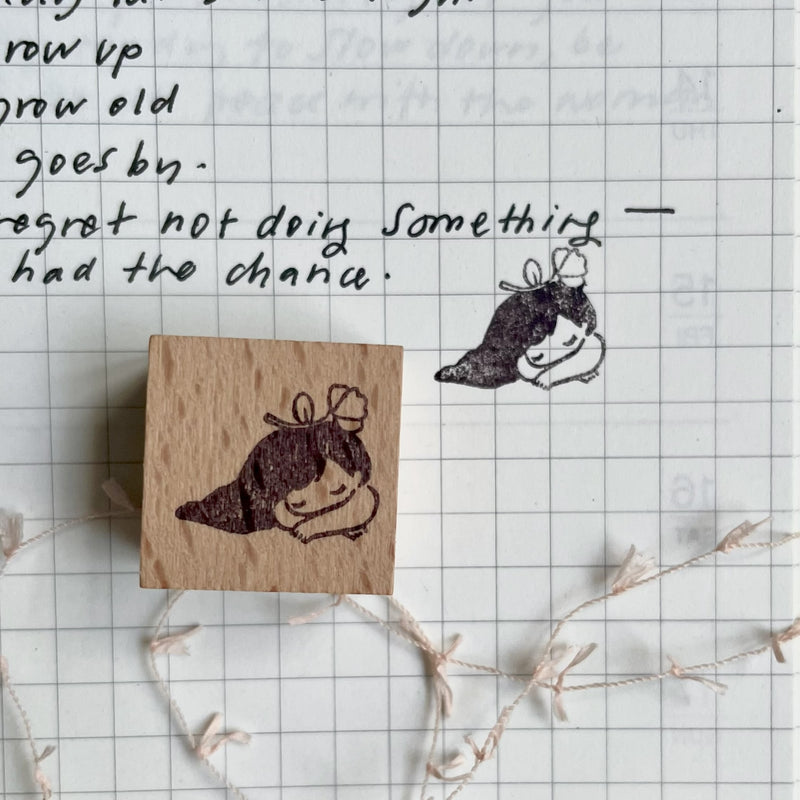 row up
grow old
goes by.
regret not doing something —
had the chance.
to slow down, be
peace with the
14
THU
15
FRI
16
SAT